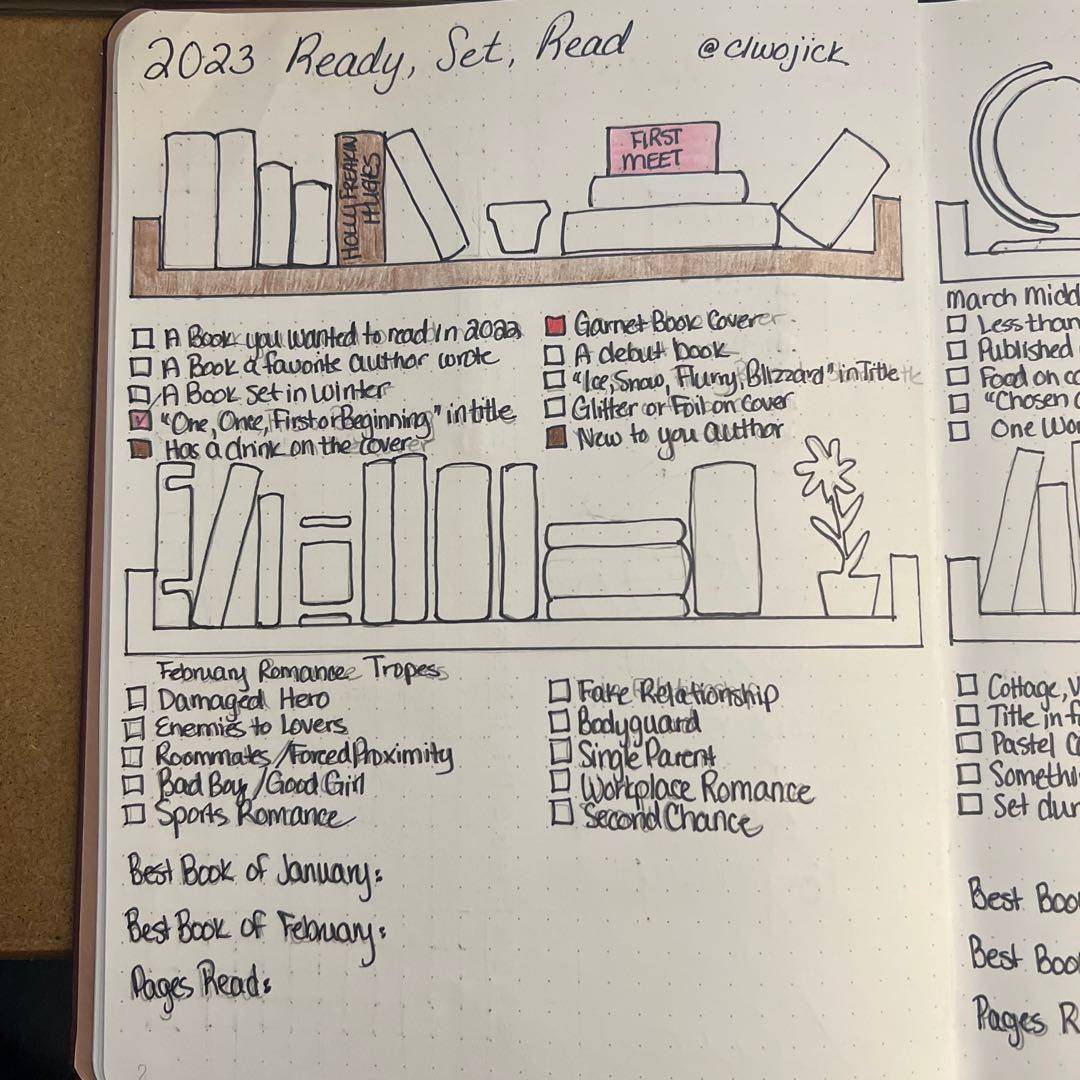 2023 Ready, Set, Read @clwojick
HOLLY FREAKIN
HUGHES
FIRST
MEET
A Book you wanted to read in 2022
A Book a favorite author wrote
A Book set in Winter
"One, Once, First or Beginning" in title
Has a drink on the cover
Garnet Book Cover
A debut book
"Ice, Snow, Flurry, Blizzard" in Title
Glitter or Foil on Cover
New to you author
February Romance Tropes
Damaged Hero
Enemies to Lovers
Roommates/Forced Proximity
Bad Boy/Good Girl
Sports Romance
Fake Relationship
Bodyguard
Single Parent
Workplace Romance
Second Chance
Best Book of January:
Best Book of February:
Pages Read:
2
March Midd
Less than
Published
Food on co
"Chosen
One Wor
Cottage, V
Title in f
Pastel C
Somethi
Set dur
Best Boo
Best Boo
Pages R